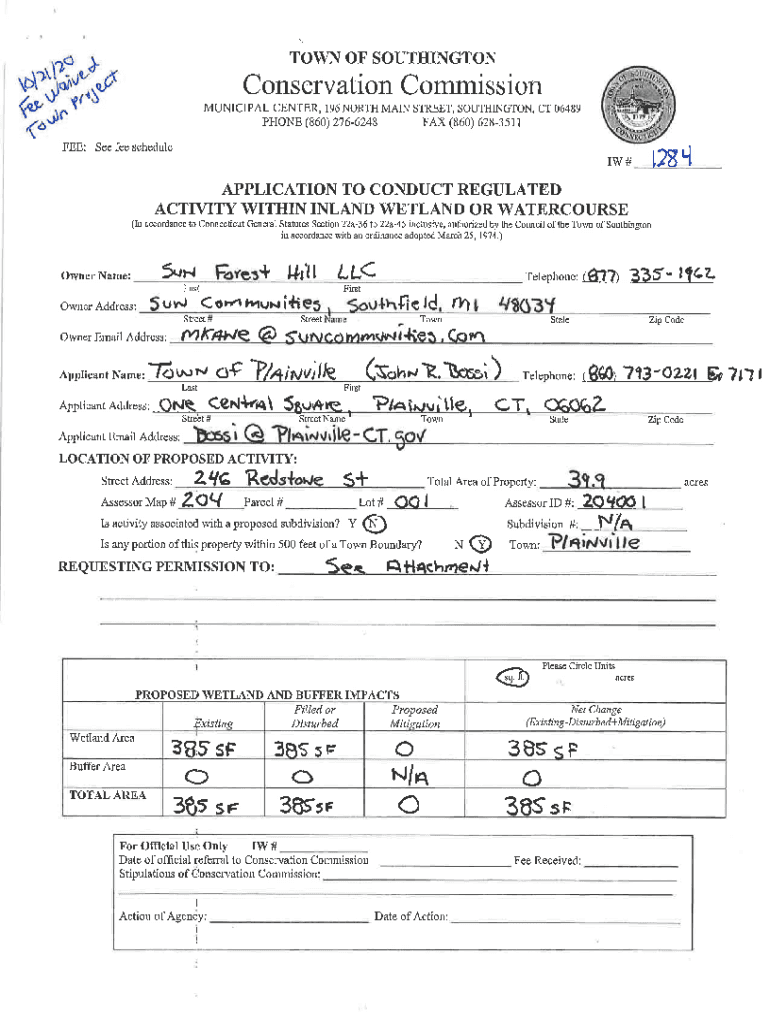 10/21/20
Fee Waived
Town Project
TOWN OF SOUTHINGTON
Conservation Commission
MUNICIPAL CENTER, 196 NORTH MAIN STREET, SOUTHINGTON, CT 06489
PHONE (860) 276-6248 FAX (860) 628-3511
FEE: See fee schedule
IW # 1284
APPLICATION TO CONDUCT REGULATED
ACTIVITY WITHIN INLAND WETLAND OR WATERCOURSE
(In accordance to Connecticut General Statutes Section 22a-36 to 22a-45 inclusive, authorized by the Council of the Town of Southington
in accordance with an ordinance adopted March 25, 1974.)
Owner Name: SUN Forest Hill LLC Telephone: (877) 335-1962
Last First
Owner Address: SUN Communities, Southfield, MI 48034
Street # Street Name Town State Zip Code
Owner Email Address: MKANE @ SUNCOMMUNITIES.COM
Applicant Name: TOWN OF PLAINVILLE (JOHN R. BOSSI) Telephone: (860) 793-0221 Ex 7171
Last First
Applicant Address: ONE CENTRAL SQUARE, PLAINVILLE, CT, 06062
Street # Street Name Town State Zip Code
Applicant Email Address: BOSSI @ PLAINVILLE-CT.gov
LOCATION OF PROPOSED ACTIVITY:
Street Address: 246 Redstone St Total Area of Property: 39.9 acres
Assessor Map # 204 Parcel # Lot # 001 Assessor ID #: 204001
Is activity associated with a proposed subdivision? Y N Subdivision #: N/A
Is any portion of this property within 500 feet of a Town Boundary? N Y Town: Plainville
REQUESTING PERMISSION TO: See Attachment
Please Circle Units
sq. ft. acres
PROPOSED WETLAND AND BUFFER IMPACTS
Existing Filled or Disturbed Proposed Mitigation Net Change (Existing-Disturbed+Mitigation)
Wetland Area 385 SF 385 SF 0 385 SF
Buffer Area 0 0 N/A 0
TOTAL AREA 385 SF 385 SF 0 385 SF
For Official Use Only IW #
Date of official referral to Conservation Commission Fee Received:
Stipulations of Conservation Commission:
Action of Agency: Date of Action: